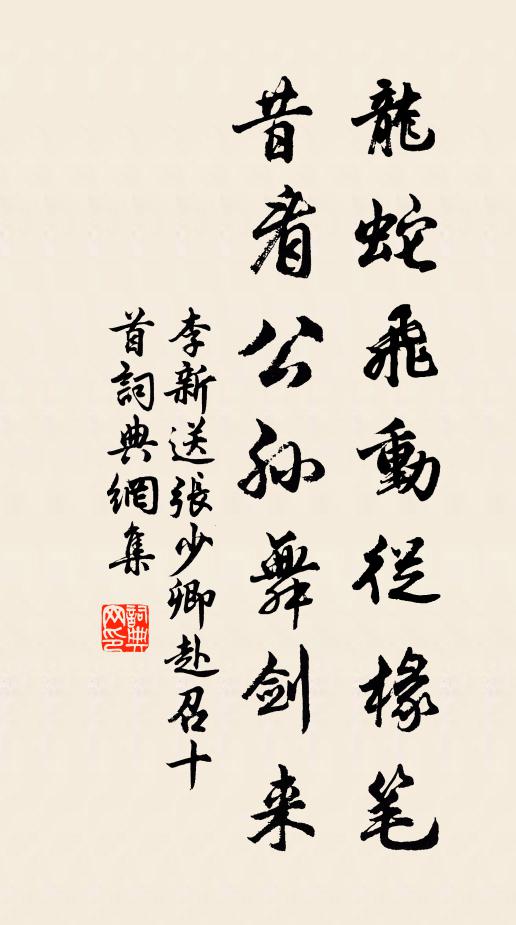 龍蛇飛動從椽笔
昔者公孙舞剑来
李新送張少卿赴召十
首詞典網集
詞典网印